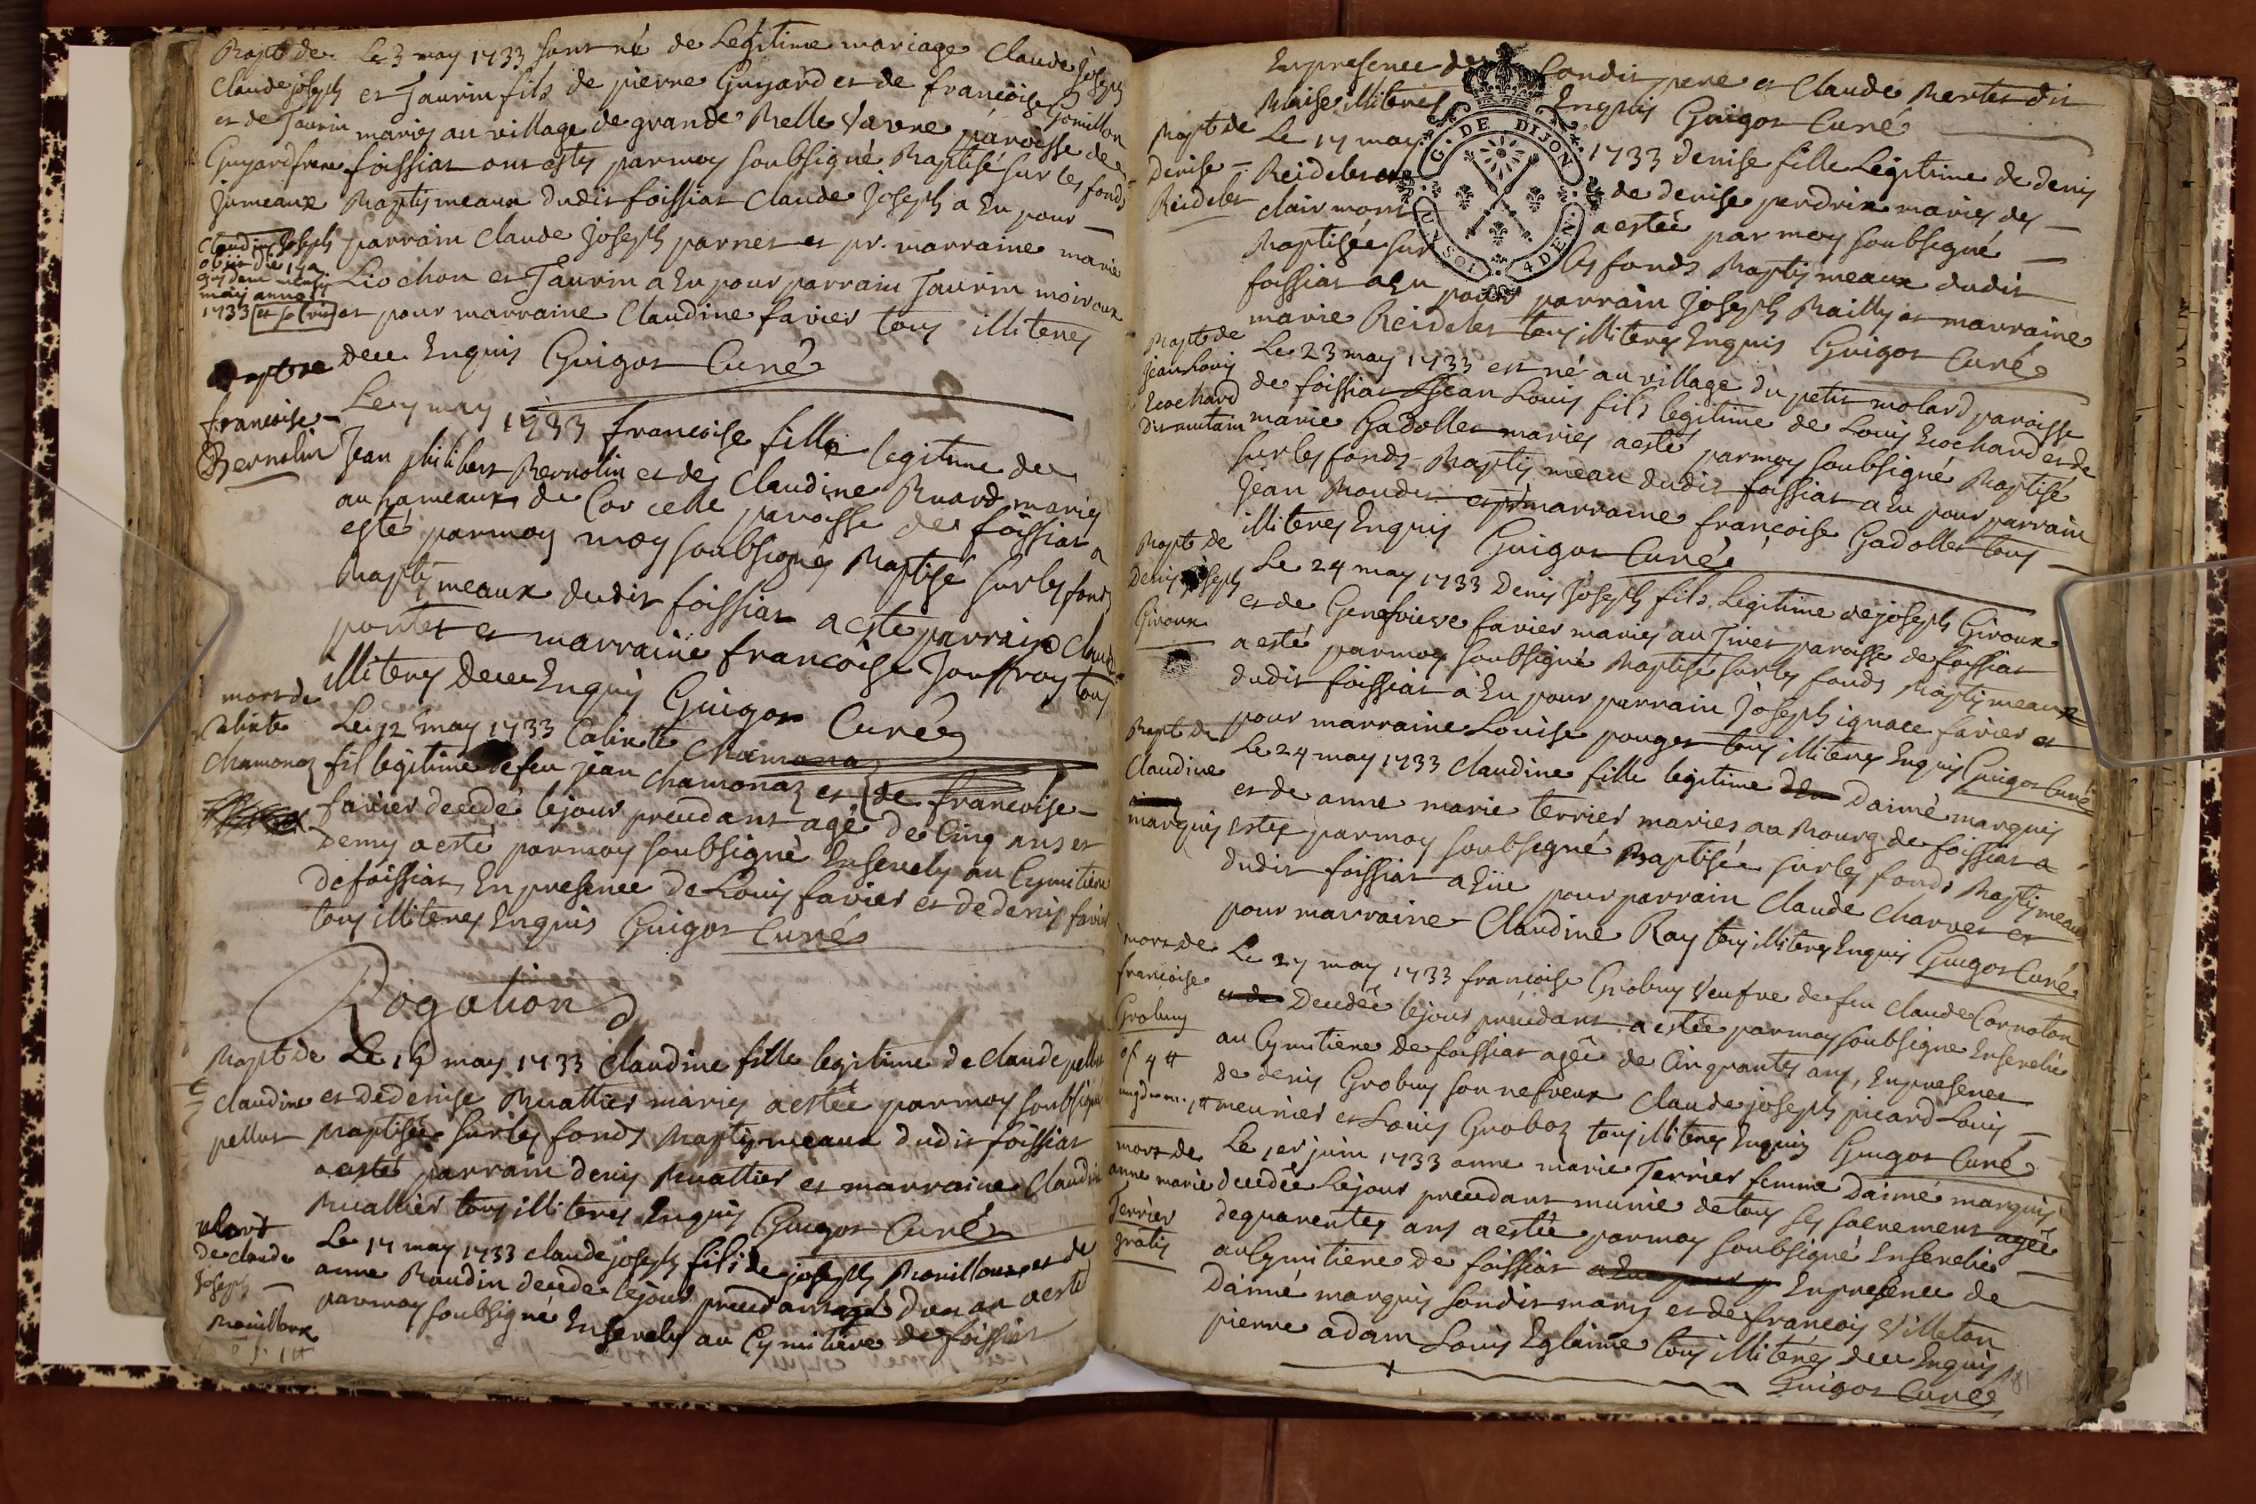 Bapt de
Claude joseph
et de Taurin
Guyard frere
jumeaux
Le 3 may 1733 sont né de Légitime mariage Claude Joseph
et Taurin fils de pierre Guyard et de françoise Gonillon
mariés au village de grande Belle Vavre paroisse de
foissiat ont estés par moy soubsigné Baptisé sur les fonds
Baptismeaux dudit foissiat Claude Joseph a Eu pour
parrain Claude Joseph parnet et pr. marraine marie
Liochon et Taurin a Eu pour parrain Taurin moiroux
et pour marraine Claudine favier tous illiteres
deue Enquis Guigot Curé
Joseph
obiit die
maij anno
1733
Bapt de
francoise
Bernolin
Le may 1733 francoise fille legitime de
Jean philibert Bernolin et de Claudine Buard mariés
au hameaux de Corcelle paroisse de foissiat a
esté par moy moy soubsignés Baptisé sur les fonds
Baptismeaux dudit foissiat a esté parrain Claude
et marraine francoise Jouffroy tous
illiteres deue Enquis Guigot Curé
mort de
Calixte
Chamonaz
Le 12 may 1733 Calixte Chamonaz
fil legitime defeu jean Chamonaz et de francoise
favier decedé le jour precedant agé de Cinq ans et
demy a esté par moy soubsigné Ensevely au Cymitiere
de foissiat En presence de Louis favier et de denis favier
tous illiteres Enquis Guigot Curé
Rogation
Bapt de
claudine
pellut
Le 15 may 1733 Claudine fille legitime de Claude pellut
et de denise Buattier mariés a estée par moy soubsigné
Baptisée sur les fonds Baptismeaux dudit foissiat
a esté parrain denis Buattier et marraine Claudine
Buattier tous illiteres Enquis Guigot Curé
Mort
de claude
Joseph
Bouilloux
Le 17 may 1733 claude joseph fils de joseph Bouilloux et de
anne Baudin decedé le jour precedant agé d'un an a esté
par moy soubsigné Ensevely au Cymitiere de foissiat
En presence de sondit pere et Claude Bertet dit
Blaise illiteres Enquis Guigot Curé
Bapt de
Denise
Reidelet
Le 17 may 1733 denise fille Légitime de denis
Reidelet et de denise perdrix mariés de
clairmont a estée par moy soubsigné
Baptisée sur les fonds Baptismeaux dudit
foissiat a Eu pour parrain Joseph Bailly et marraine
marie Reidelet tous illiteres Enquis Guigot Curé
G. DE DIJON
4 DEN.
Bapt de
Jean Louis
Ecochard
Le 23 may 1733 est né au village du petit molard paroisse
de foissiat Jean Louis fils legitime de Louis Ecochard et de
marie Gadollet mariés a esté par moy soubsigné Baptisé
sur les fonds Baptismeau dudit foissiat a Eu pour parrain
Jean Boudet et pr marraine françoise Gadollet tous
illiteres Enquis Guigot Curé
Bapt de
Denis joseph
Giroux
Le 24 may 1733 Denis Joseph fils Légitime de joseph Giroux
et de Genefvieve favier mariés au Tiret paroisse de foissiat
a esté par moy soubsigné Baptisé sur les fonds Baptismeaux
dudit foissiat à Eu pour parrain Joseph ignace favier et
pour marraine Louise pouget tous illiteres Enquis Guigot Curé
Bapt de
Claudine
marquis
Le 24 may 1733 Claudine fille legitime Daimé marquis
et de anne marie terrier mariés au Bourg de foissiat a
estés par moy soubsigné Baptisée sur les fonds Baptismeaux
dudit foissiat a Eüe pour parrain Claude Charvet et
pour marraine Claudine Ray tous illiteres Enquis Guigot Curé
mort de
francoise
Grobuy
Le 27 may 1733 francoise Grobuy Veufve de feu Claude Cornoton
Decedée le jour precedant a estée par moy soubsigné Ensevelie
au Cymitiere de foissiat agée de Cinquantes ans, En presence
de denis Grobuy son nefveux Claude joseph picard Louis
meunier et Louis Groboz tous illiteres Enquis Guigot Curé
mort de
anne marie
Terrier
gratis
Le 1er juin 1733 anne marie Terrier femme Daimé marquis
decedée Le jour precedant munie de tous ses sacrement agée
de quarentes ans a estée par moy soubsigné Ensevelie
au Cymitiere de foissiat En presence de
Daimé marquis sondit maris et de francois Villeton
pierre adam Louis Eglaime tous illiterés deue Enquis
Guigot Curé